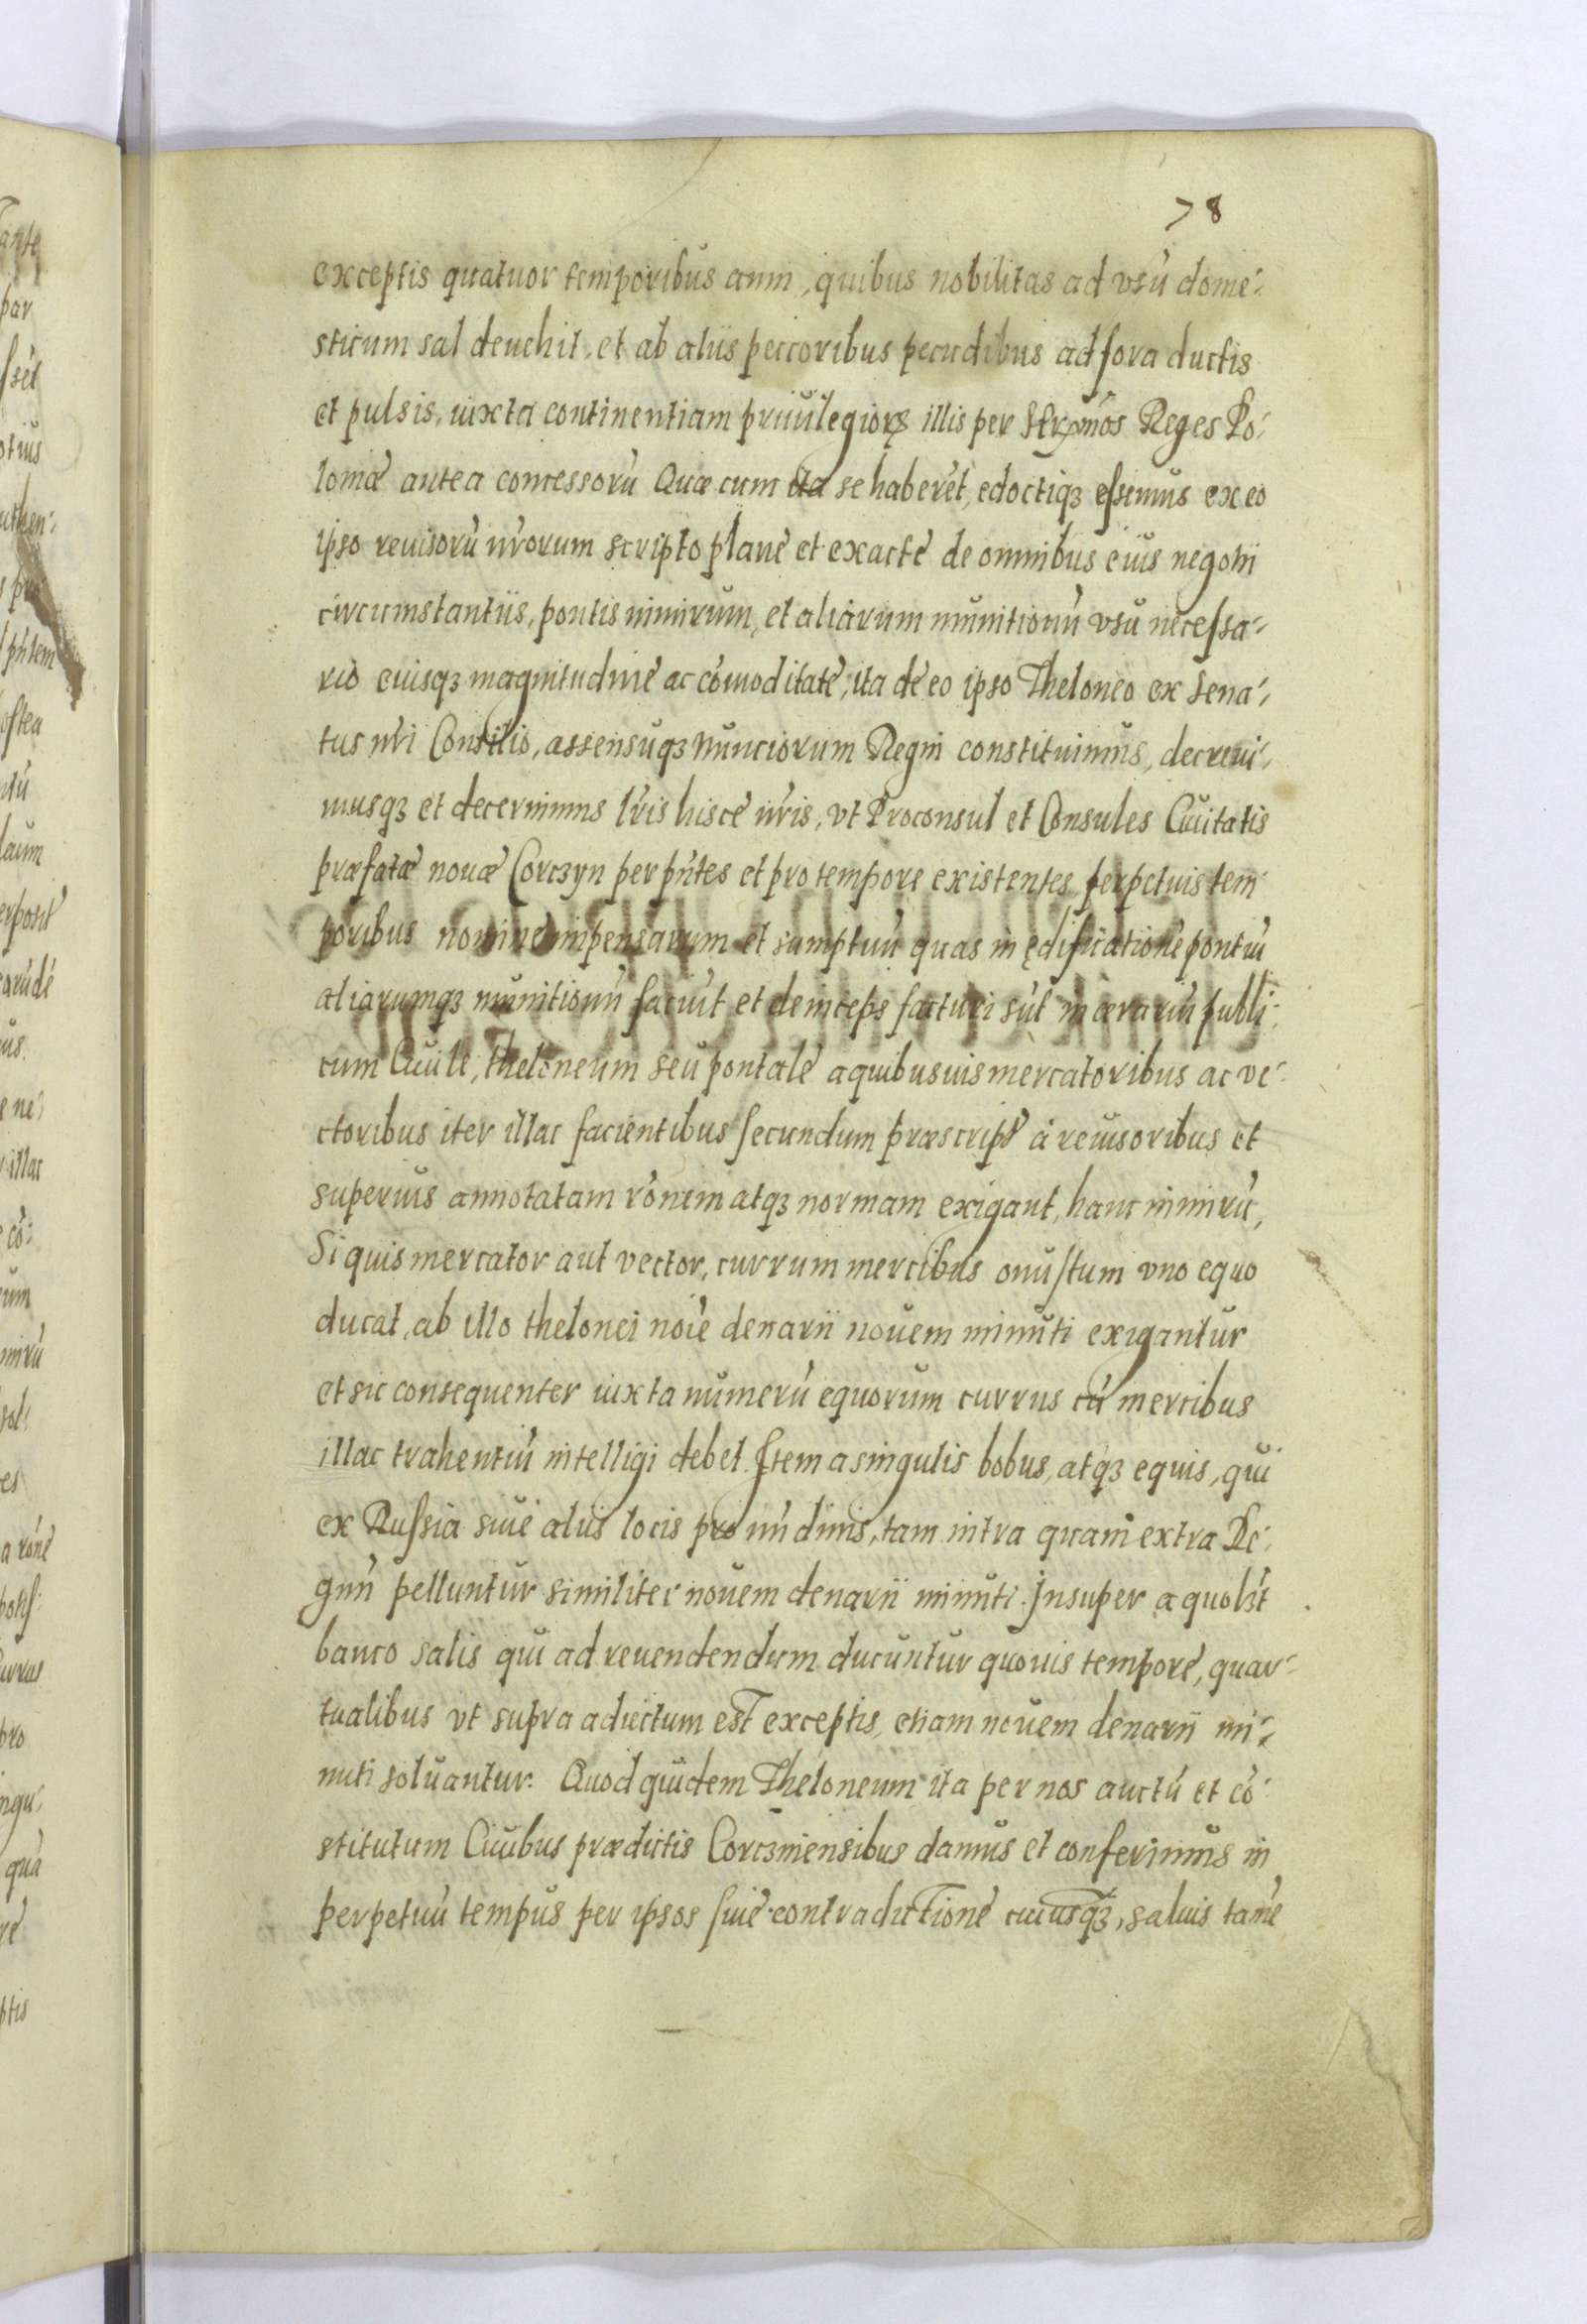 78
exceptis quatuor temporibus anni, quibus nobilitas ad vsū dome-
sticum sal deuehit. et ab aliis peccoribus pecudibus ad fora ductis
et pulsis, iuxta continentiam priuilegiorꝝ illis per Sermōs Reges Po-
loniæ antea concessorū Quæ cum ita se haberēt, edoctiqꝫ essemus ex eo
ipso reuisorū nr̄orum scripto plane et exacte de omnibus eius negotii
circumstantiis, pontis nimirum, et aliarum munitionū vsu necessa-
rio eiusqꝫ magnitudine ac cōmoditate, ita de eo ipso Theloneo ex Sena-
tus nr̄i Consilio, assensuqꝫ Nunciorum Regni constituimus, decreui-
musqꝫ et decernimus lr̄is hisce nr̄is, vt Proconsul et Consules Ciuitatis
præfatæ nouæ Corczyn per pn̄tes et pro tempore existentes perpetuis tem-
poribus nomine impensarum et sumptuū quas in ędificatione pontiū
aliarumqꝫ munitionū faciūt et deinceps facturi sūt in ærariū publi-
cum Ciuile, Theloneum seu pontale a quibusuis mercatoribus ac ve-
ctoribus iter illac facientibus secundum præscript̄ à reuisoribus et
superius annotatam rōnem atqꝫ normam exigant, hanc nimirū,
Si quis mercator aut vector, currum mercibus onustum vno equo
ducat, ab illo thelonei noīe denarii nouem minuti exigantur
et sic consequenter iuxta numerū equorum currus cū mercibus
illac trahentiū intelligi debet. Item a singulis bobus, atqꝫ equis, qui
ex Russia siue aliis locis pro nūdinis, tam intra quam extra Re-
gnū pelluntur similiter nouem denarii minuti. Insuper a quolꝫt
banco salis qui ad reuendendum ducuntur quouis tempore, quar-
tualibus vt supra adiectum est exceptis, etiam nouem denarii mi-
nuti soluantur. Quod quidem Theloneum ita per nos auctū et cō-
stitutum Ciuibus prædictis Corczinensibus damus et conferimus in
perpetuū tempus per ipsos sine contradictione cuiusqꝫ, saluis tamē